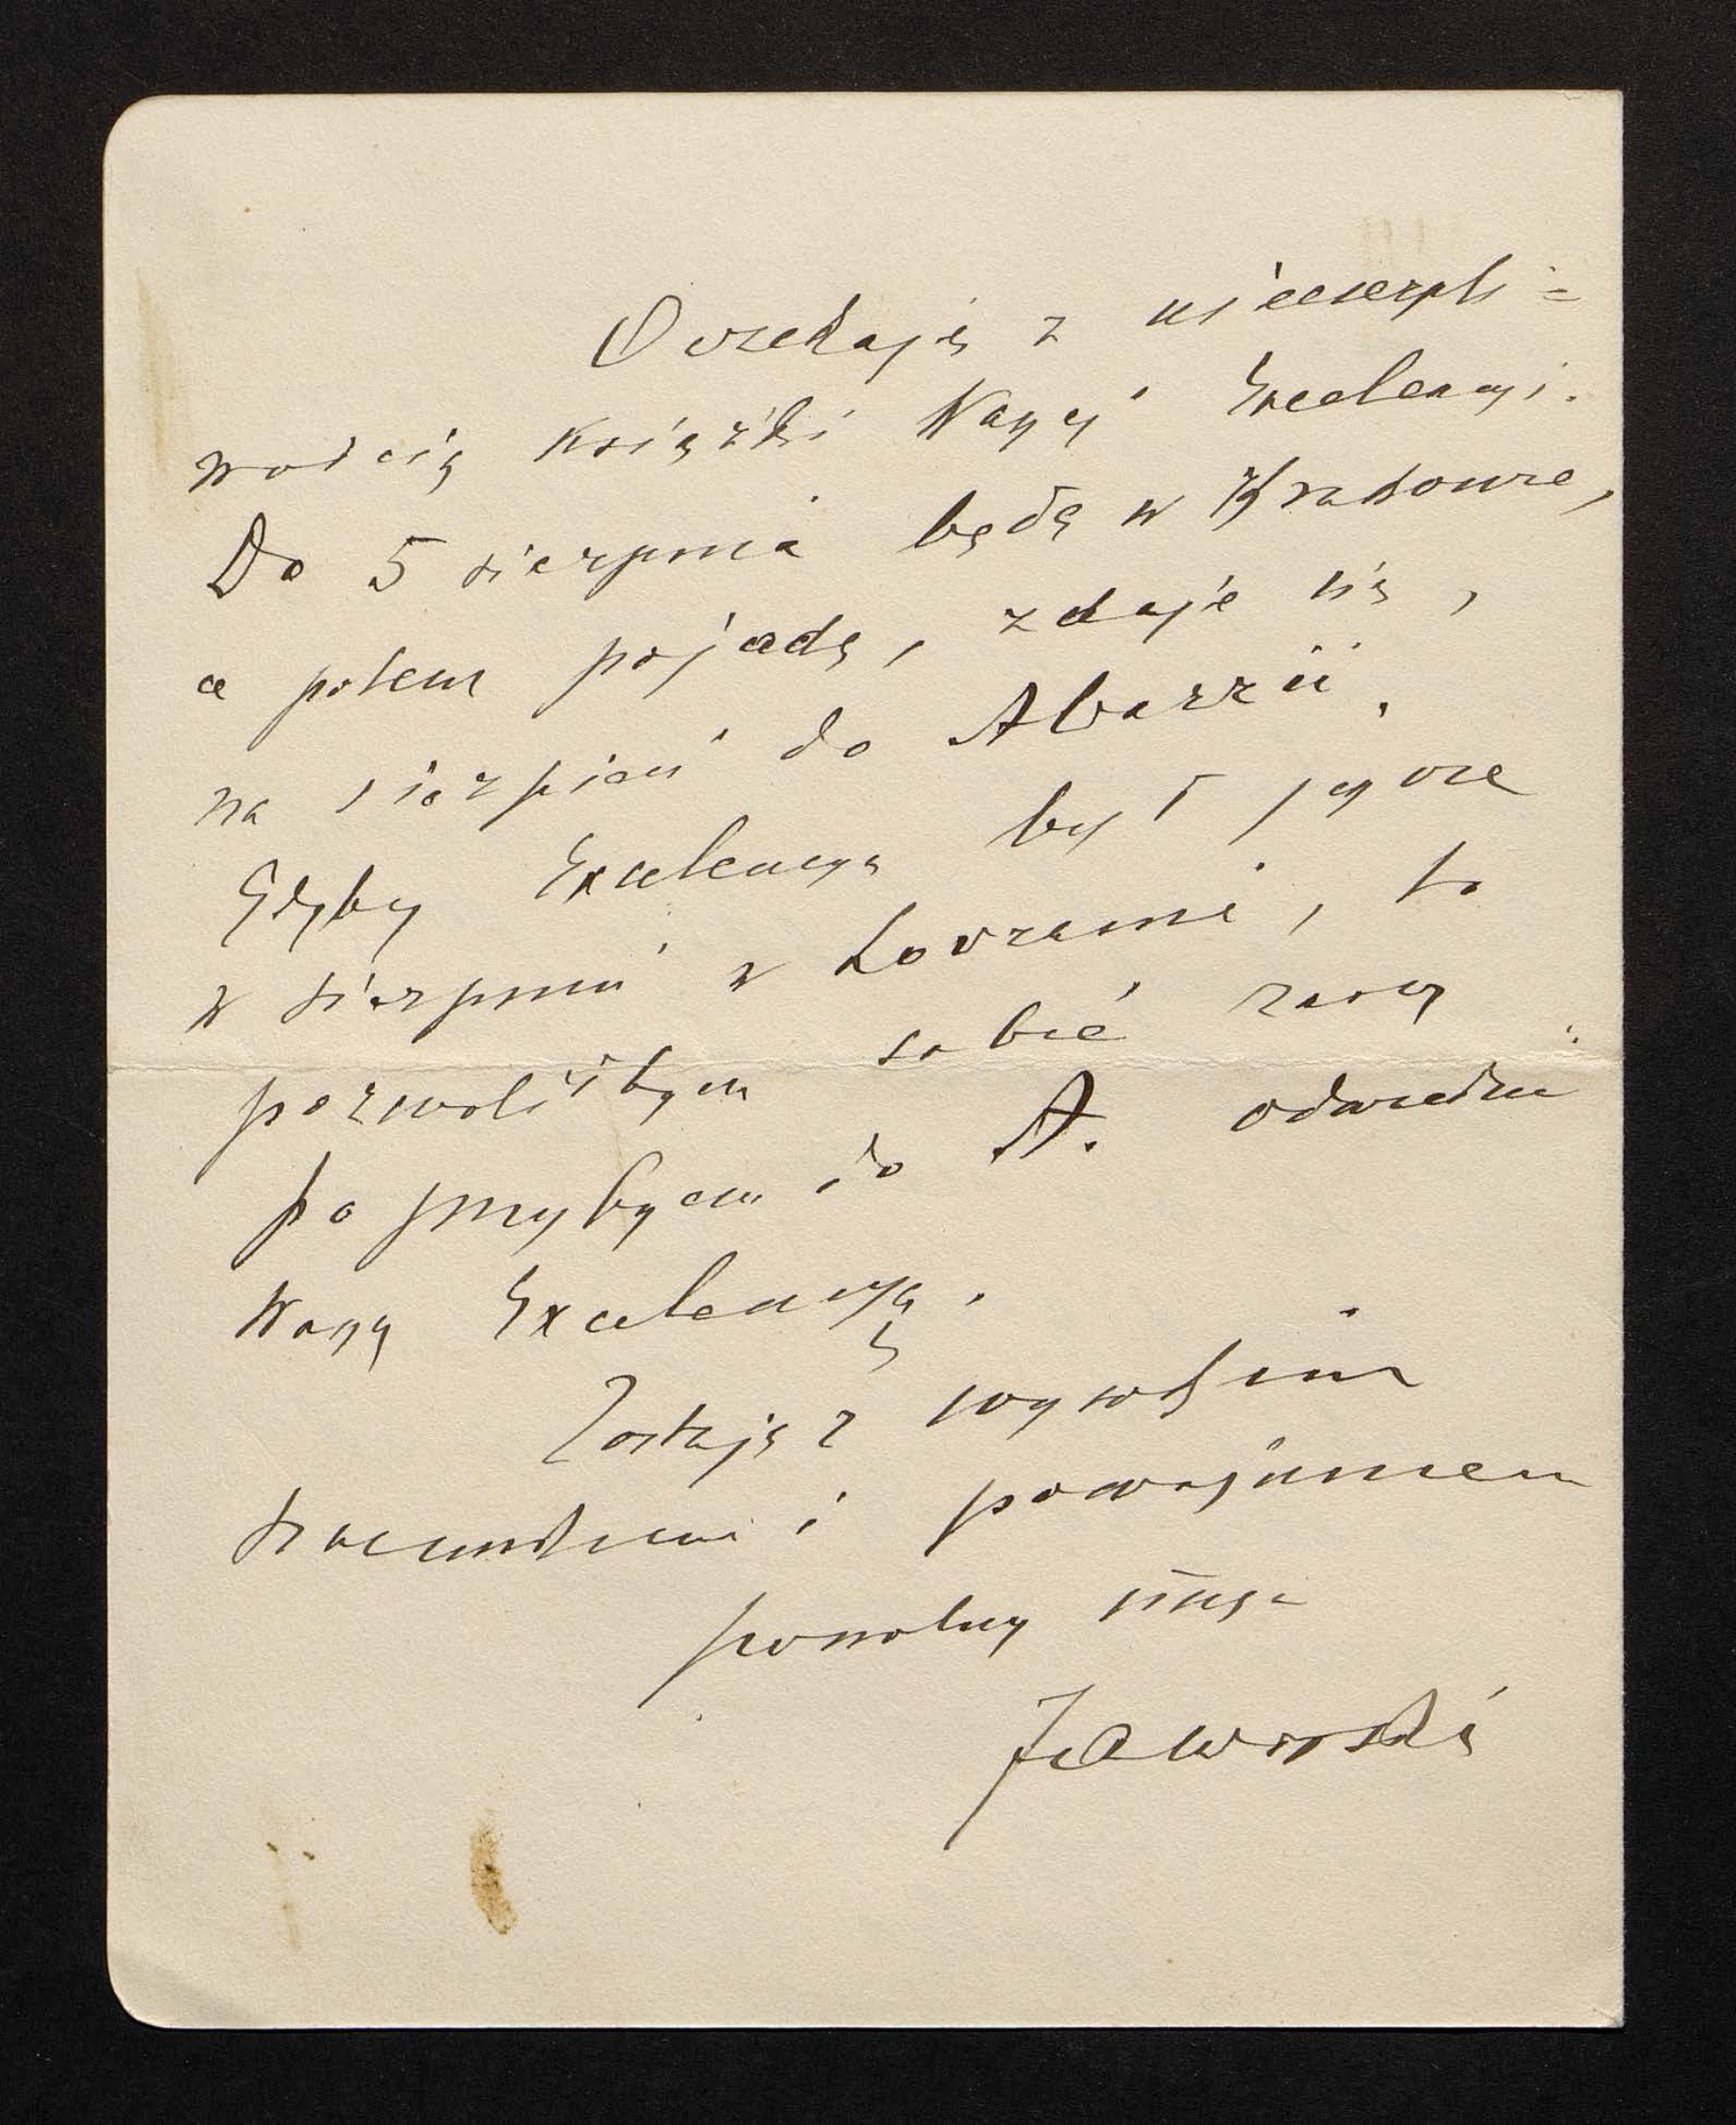 Oczekuję z niecierpli=
wością książki Waszej Excelencyi.
Do 5 sierpnia będę w Krakowie,
a potem pojadę, zdaje się,
na sierpień do Abazzii.
Gdyby Excelencya był jeszcze
w sierpniu w Lovranie, to
pozwoliłbym sobie zaraz
po przybyciu do A. odwiedzić
Waszą Excelencyę.
Zostaję z wysokim
szacunkiem i poważaniem
powolny sługa
Jaworski